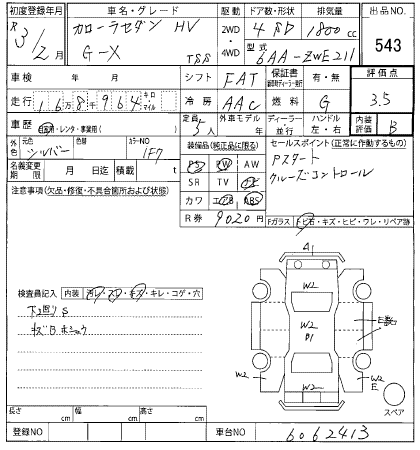 初度登録年月 車名・グレード 駆動 ドア数・形状 排気量 出品NO.
R3/2月 カローラセダン HV 2WD・4WD 4 SD 1800cc 543
G-X 型式 6AA-ZWE211
車検 年 月 シフト FAT 保証書 有・無 評価点
走行 168千964 キロ マイル 冷房 AAC 燃料 G 3.5
車歴 自家用・レンタ・事業用( ) 定員 5人 外車モデル 年 ディーラー 並行 ハンドル 左・右 内装評価 B
外色 元色 シルバー 色 カラーNO 1F7 装備品(純正品に限る) セールスポイント(正常に作動するもの)
名義変更期限 月 日迄 積載 t PS PW AW Pスタート
注意事項(欠品・修復・不具合箇所および状態) SR TV クルーズコントロール
カワ エアB ABS
R券 9020円 Fガラス 飛石・キズ・ヒビ・ワレ・リペア跡
A1
検査員記入 内装 汚レ・スレ・キズ・キレ・コゲ・穴
W2
下廻りS
W2
P1
E
W2
W2
E
W2
スペア
長さ cm 幅 cm 高さ cm
登録NO 車台NO 6062413